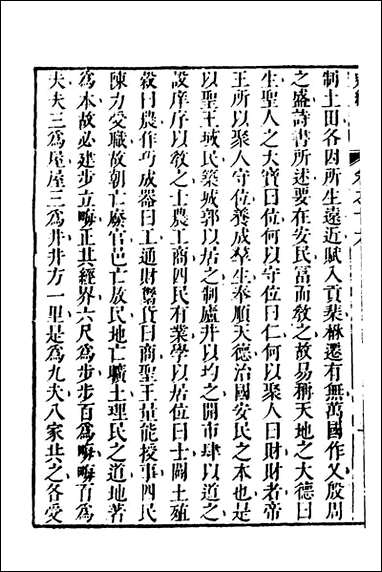 制土田各因所生遠近賦入貢棐楙遷有無萬國作乂殷周
之盛詩書所述要在安民富而敎之故易稱天地之大德曰
生聖人之大寶曰位何以守位曰仁何以聚人曰財財者帝
王所以聚人守位養成羣生奉順天德治國安民之本也是
以聖王域民築城郭以居之制廬井以均之開市肆以道之
設庠序以敎之士農工商四民有業學以居位曰士闢土殖
穀曰農作巧成器曰工通財鬻貨曰商聖王量能授事四民
陳力受職故朝亡廢官邑亡敖民地亡曠土理民之道地著
爲本故必建步立畮正其經界六尺爲步步百爲畮畮百爲
夫夫三爲屋屋三爲井井方一里是爲九夫八家共之各受